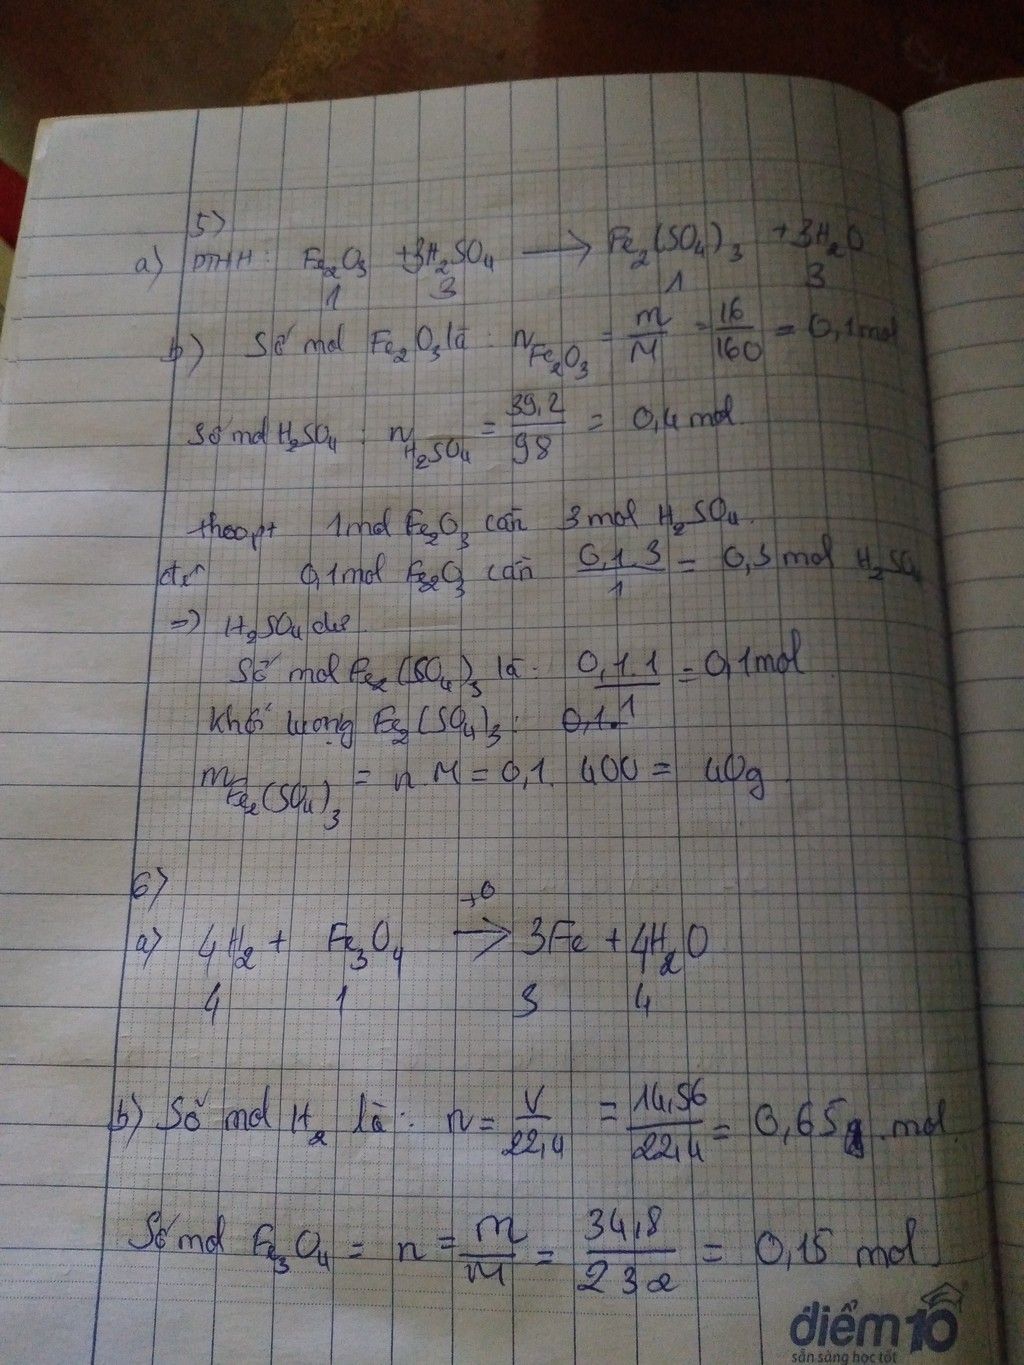 5)
a) PTHH: Fe₂O₃ + 3H₂SO₄ ⟶ Fe₂(SO₄)₃ + 3H₂O
1 3 1 3
b) Số mol Fe₂O₃ là: n Fe₂O₃ = m/M = 16/160 = 0,1 mol
Số mol H₂SO₄: n H₂SO₄ = 39,2/98 = 0,4 mol.
theo pt 1 mol Fe₂O₃ cần 3 mol H₂SO₄.
0,1 mol Fe₂O₃ cần 0,1.3/1 = 0,3 mol H₂SO₄
=> H₂SO₄ dư.
Số mol Fe₂(SO₄)₃ là: 0,1.1/1 = 0,1 mol
Khối lượng Fe₂(SO₄)₃: 0,1.
m Fe₂(SO₄)₃ = n.M = 0,1. 400 = 40g.
6)
a) 4H₂ + Fe₃O₄ ⟶ 3Fe + 4H₂O
4 1 3 4
b) Số mol H₂ là: n = V/22,4 = 14,56/22,4 = 0,65 mol.
Số mol Fe₃O₄ = n = m/M = 34,8/232 = 0,15 mol
điểm 10
sẵn sàng học tốt